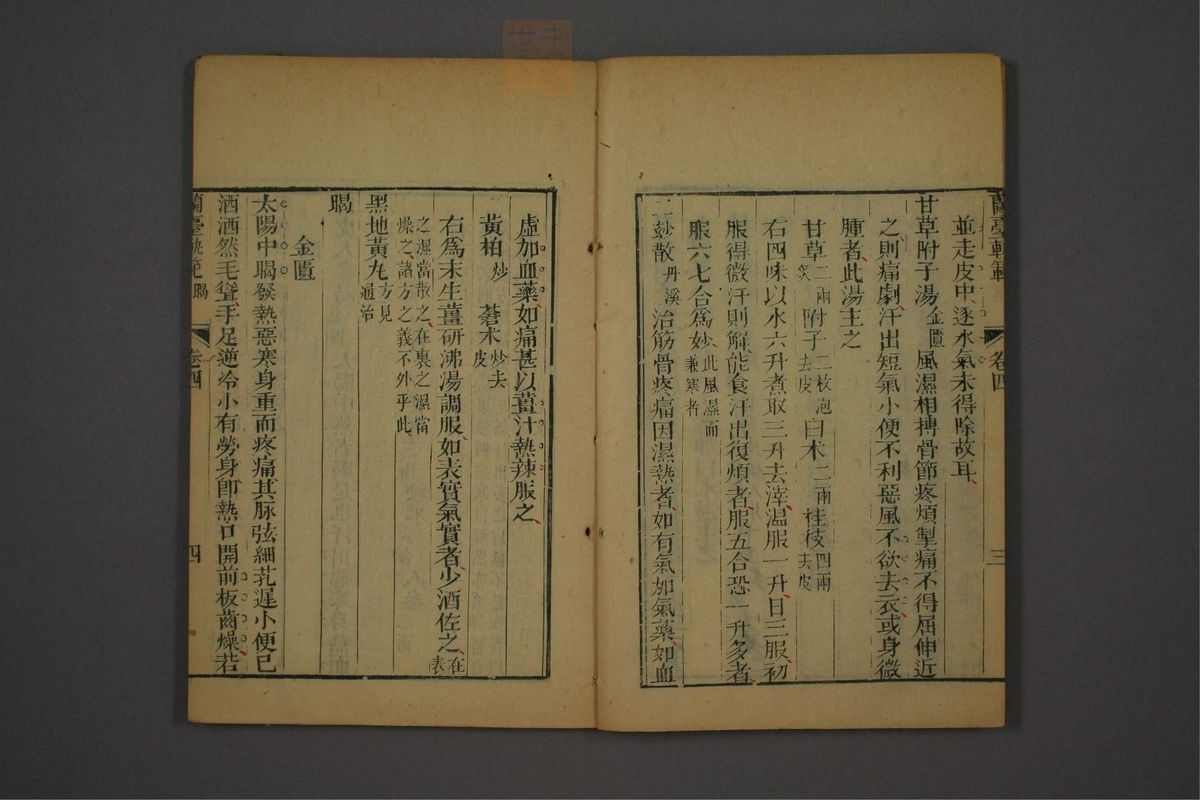 蘭臺軌範 卷四 三
並走皮中逐水氣未得除故耳
甘草附子湯金匱 風濕相搏骨節疼煩掣痛不得屈伸近
之則痛劇汗出短氣小便不利惡風不欲去衣或身微
腫者此湯主之
甘草二兩炙 附子二枚泡去皮 白术二兩 桂枝四兩去皮
右四味以水六升煮取三升去滓温服一升日三服初
服得微汗則解能食汗出復煩者服五合恐一升多者
服六七合爲妙此風濕而兼寒者
二妙散丹溪 治筋骨疼痛因濕熱者如有氣加氣藥如血
虛加血藥如痛甚以薑汁熱辣服之
黃柏炒 蒼术炒去皮
右爲末生薑研沸湯調服如表實氣實者少酒佐之在表
之濕當散之在裏之濕當燥之諸方之義不外乎此
黑地黃丸方見通治
暍
金匱
太陽中暍發熱惡寒身重而疼痛其脉弦細芤遲小便已
洒洒然毛聳手足逆冷小有勞身卽熱口開前板齒燥若
蘭臺軌範 暍 卷四 四